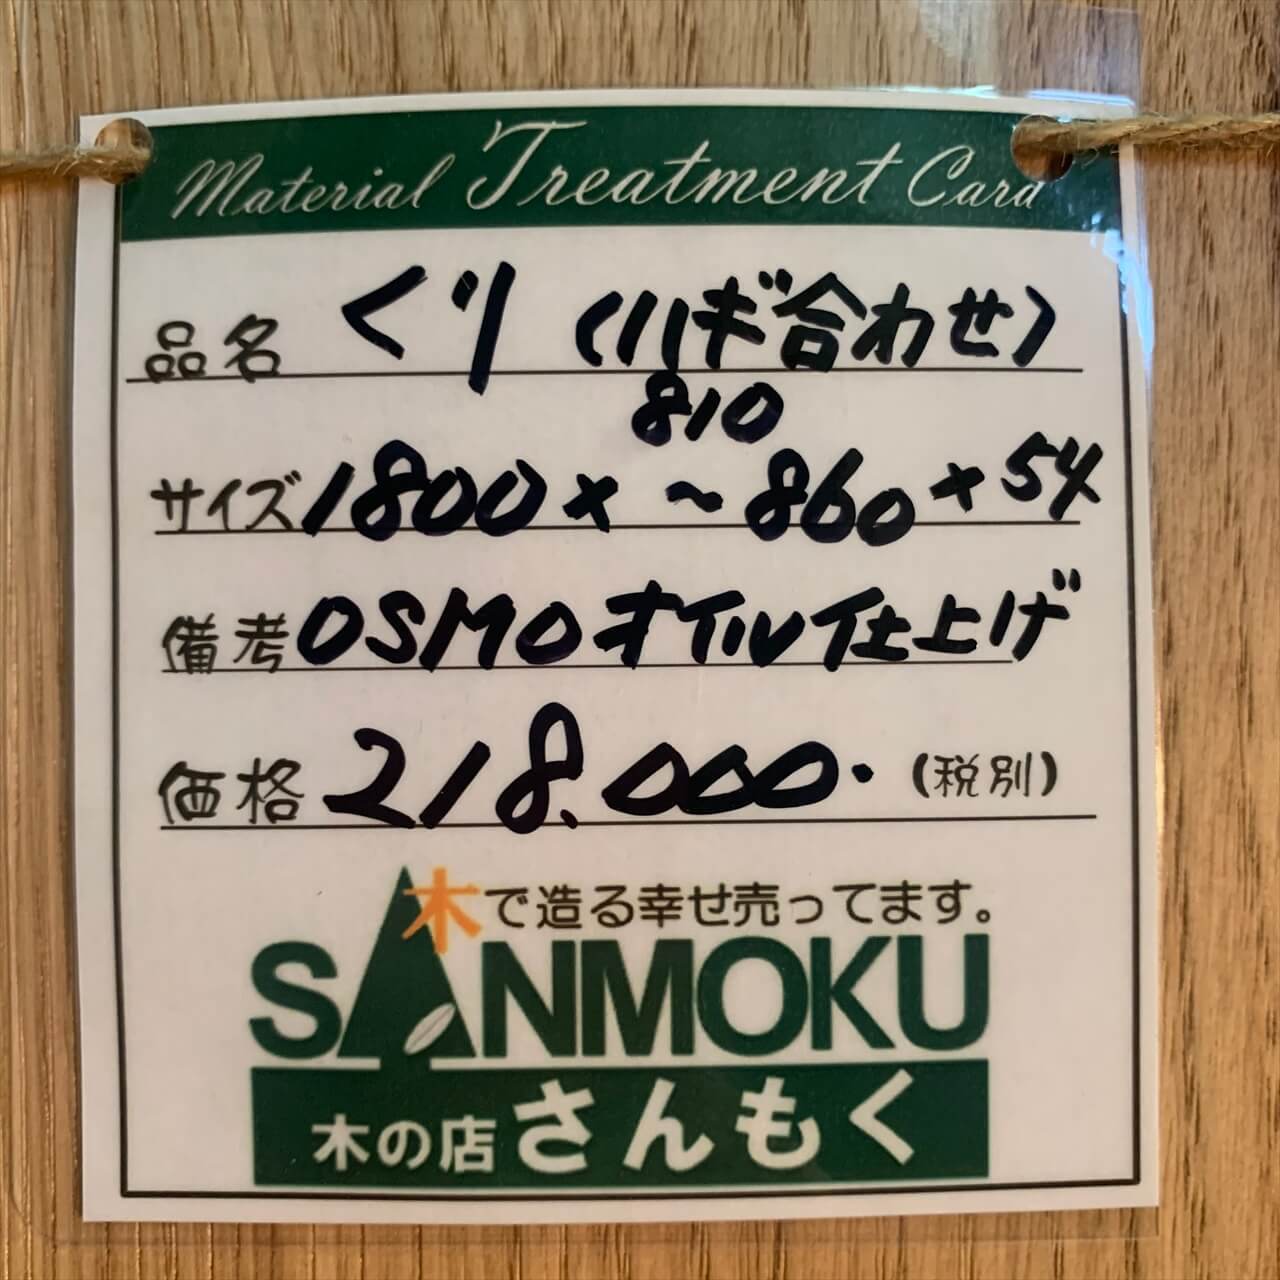 Material Treatment Card
品名 くり (ハギ合わせ)
810
サイズ 1800 × ～860 × 54
備考 OSMOオイル仕上げ
価格 218,000. (税別)
木で造る幸せ売ってます。
SANMOKU
木の店 さんもく